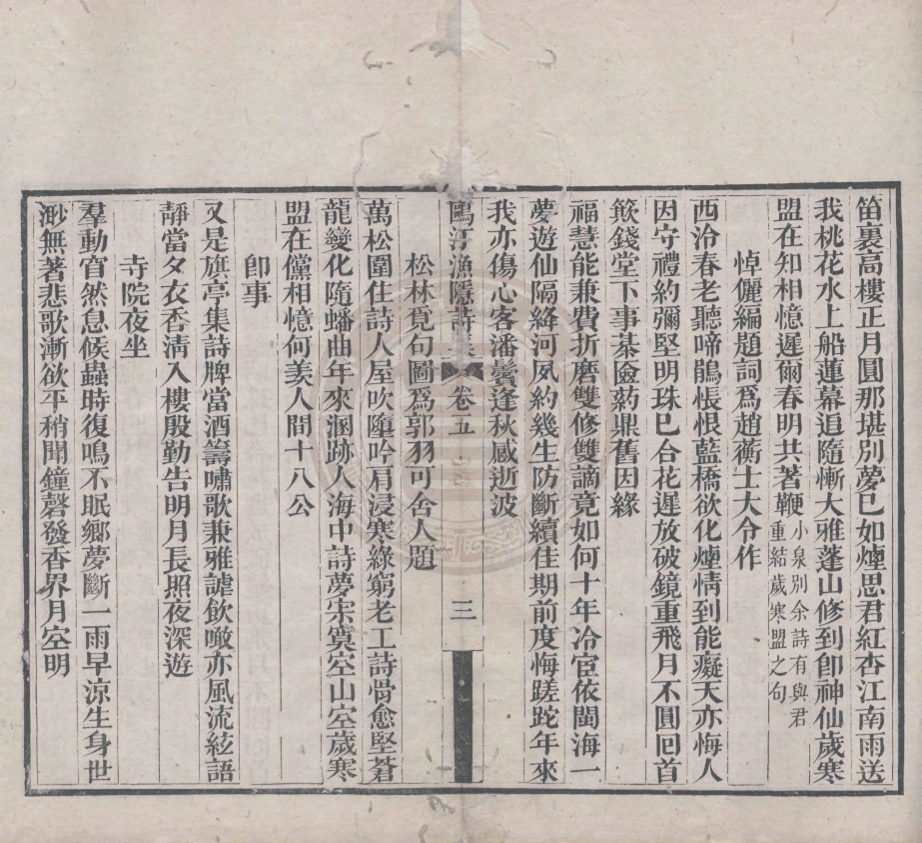 笛裏高樓正月圓那堪別夢巳如煙思君紅杏江南雨送
我桃花水上船蓮幕追隨慚大雅蓬山修到卽神仙歲寒
盟在知相憶遲爾春明共著鞭小泉別余詩有與君重結歲寒盟之句
悼儷編題詞爲趙蘅士大令作
西泠春老聽啼鵑悵恨藍橋欲化煙情到能癡天亦悔人
因守禮約彌堅明珠巳合花遲放破鏡重飛月不圓囘首
斂錢堂下事棊匳藥鼎舊因緣
福慧能兼費折磨雙修雙謫竟如何十年冷宦依閩海一
夢遊仙隔絳河夙約幾生防斷續佳期前度悔蹉跎年來
我亦傷心客潘鬢逢秋感逝波
鷗汀漁隱詩集 卷五 三
松林覓句圖爲郭羽可舍人題
萬松圍住詩人屋吹墮吟肩浸寒綠窮老工詩骨愈堅蒼
龍變化隨蟠曲年來溷跡人海中詩夢宗寞空山空歲寒
盟在儻相憶何羡人間十八公
卽事
又是旗亭集詩牌當酒籌嘯歌兼雅謔飲噉亦風流絃語
靜當夕衣香淸入樓殷勤告明月長照夜深遊
寺院夜坐
羣動窅然息候蟲時復鳴不眠鄉夢斷一雨早涼生身世
渺無著悲歌漸欲平稍聞鐘磬發香界月空明